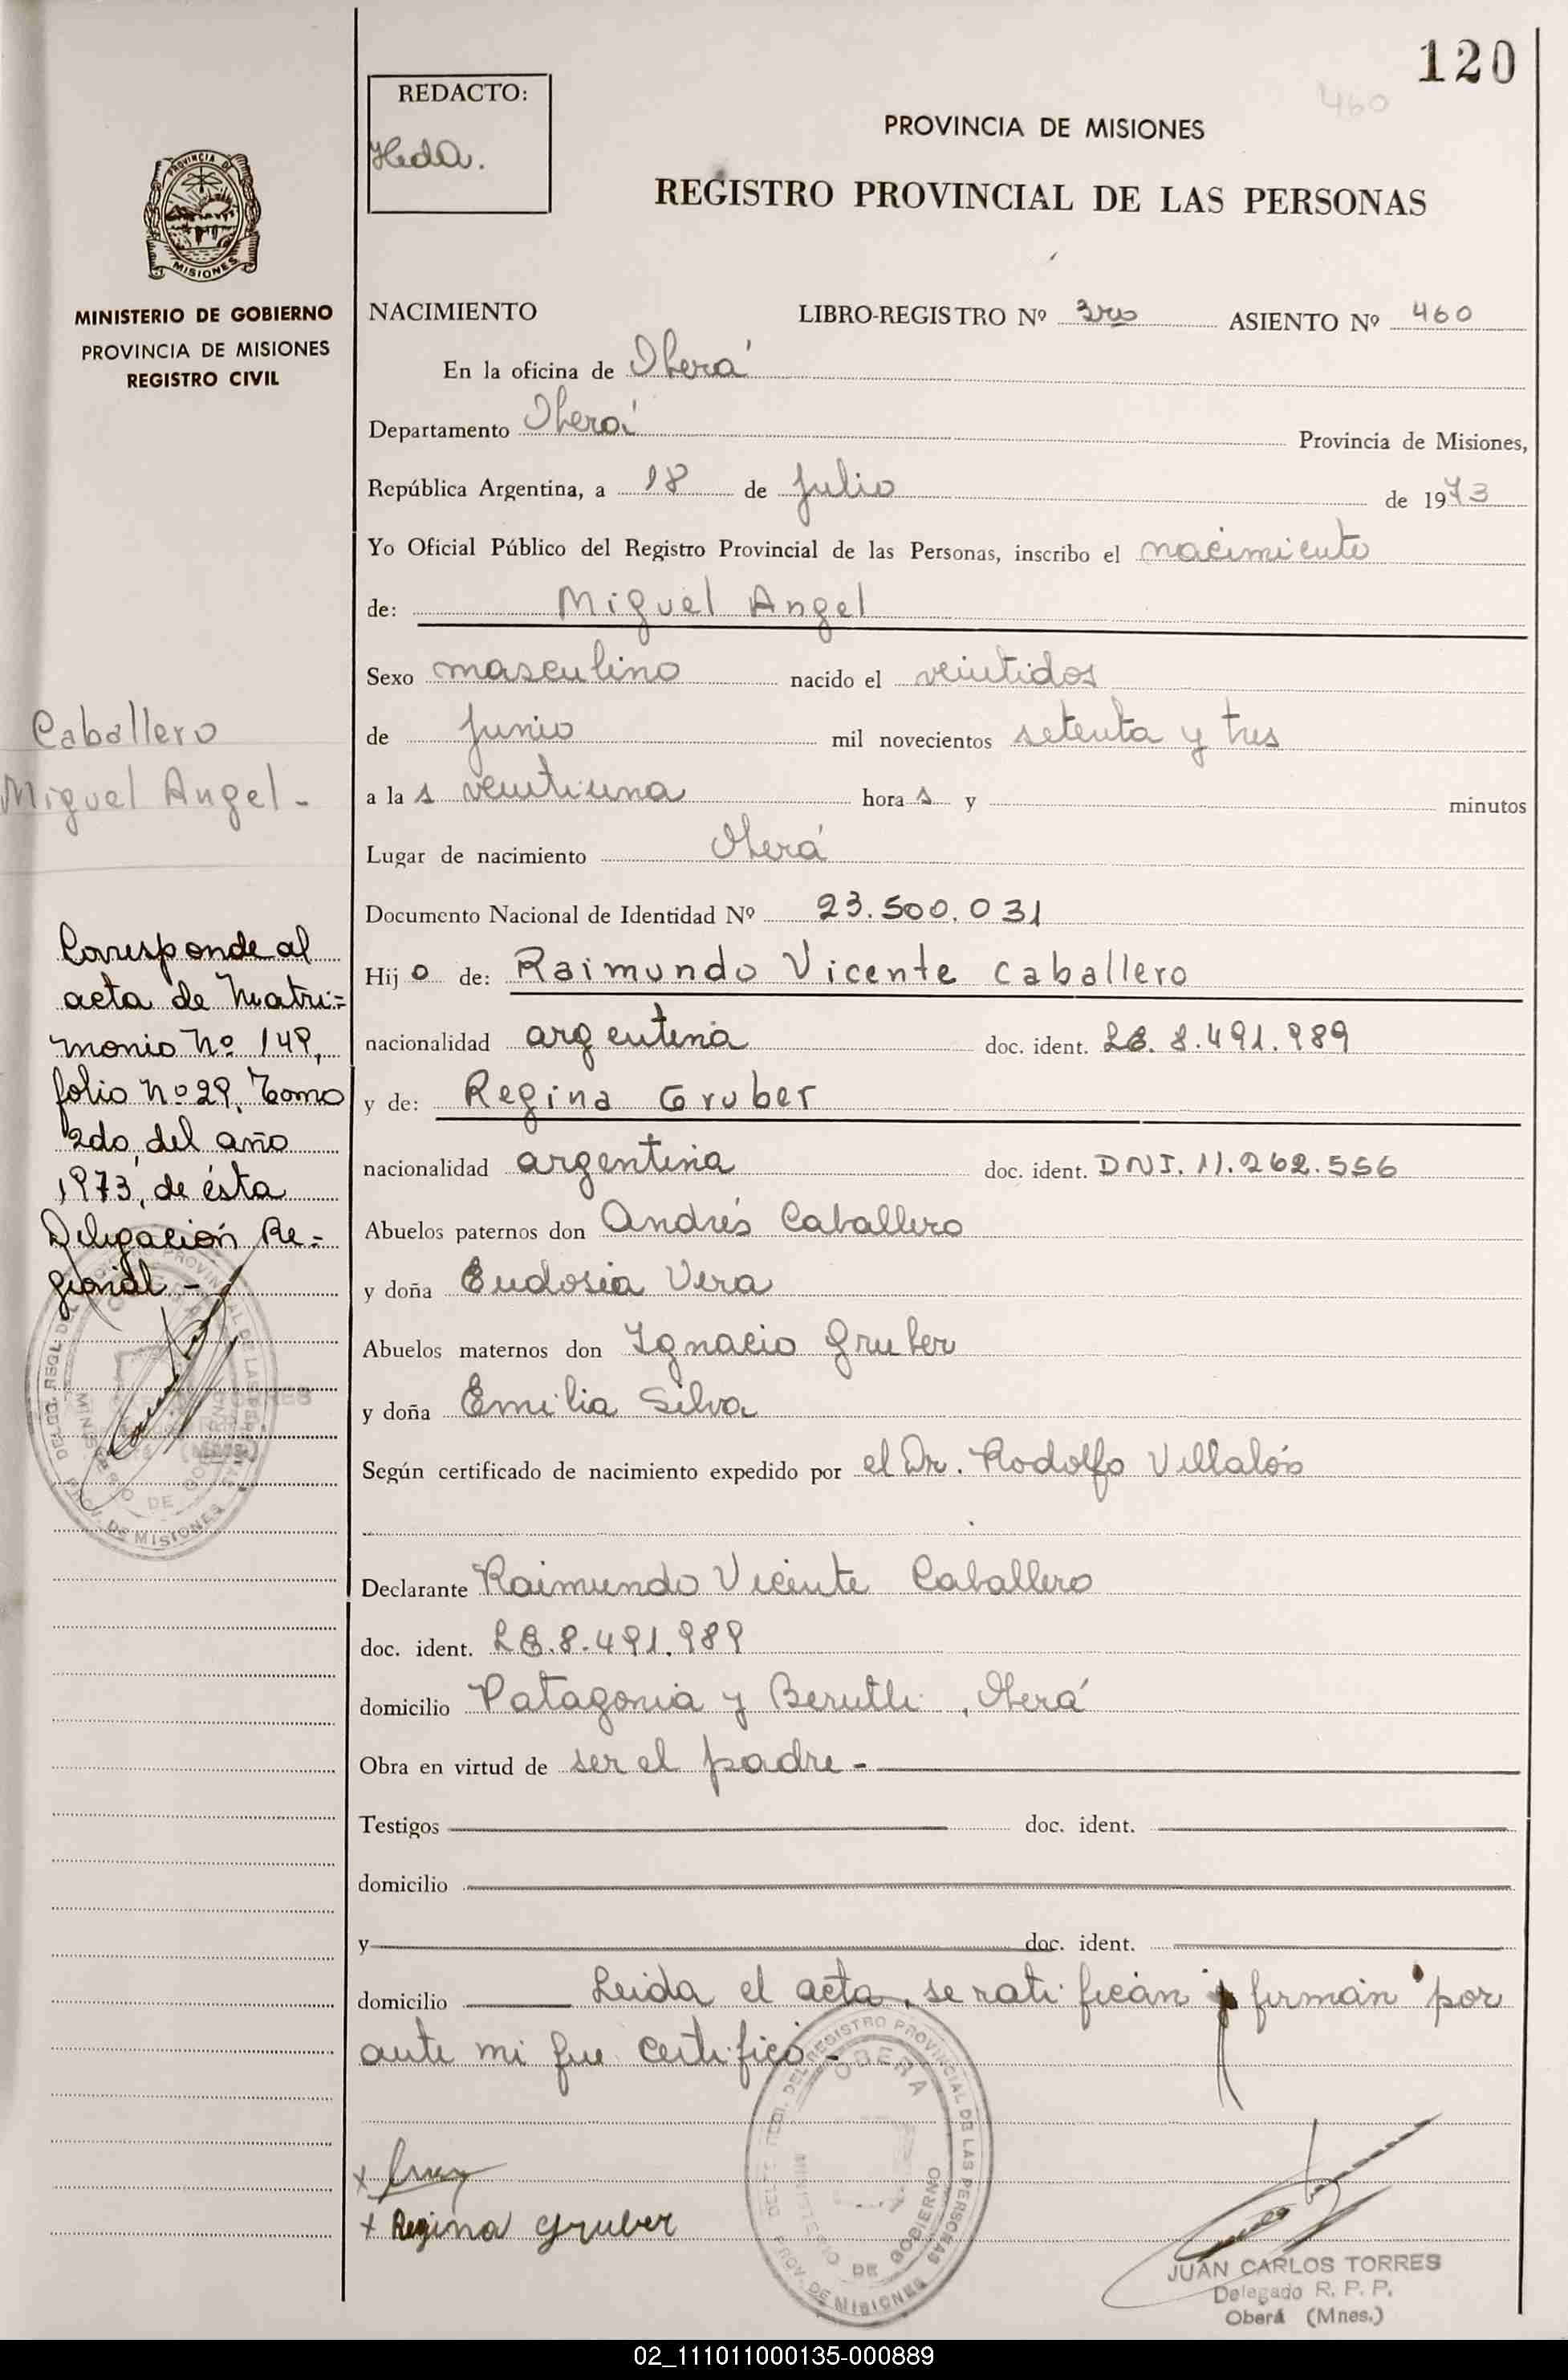 120
460
REDACTO:
HedA.
PROVINCIA DE MISIONES
REGISTRO PROVINCIAL DE LAS PERSONAS
PROVINCIA DE
MISIONES
MINISTERIO DE GOBIERNO
PROVINCIA DE MISIONES
REGISTRO CIVIL
NACIMIENTO LIBRO-REGISTRO Nº 3ro ASIENTO Nº 460
En la oficina de Oberá
Departamento Oberá Provincia de Misiones,
República Argentina, a 18 de Julio de 1973
Yo Oficial Público del Registro Provincial de las Personas, inscribo el nacimiento
de: Miguel Angel
Sexo masculino nacido el veintidos
de Junio mil novecientos setenta y tres
a la s veintiuna hora s y minutos
Lugar de nacimiento Oberá
Documento Nacional de Identidad Nº 23.500.031
Hij o de: Raimundo Vicente Caballero
nacionalidad argentina doc. ident. LE. 8.491.989
y de: Regina Gruber
nacionalidad argentina doc. ident. DNI. 11.262.556
Abuelos paternos don Andrés Caballero
y doña Eudosia Vera
Abuelos maternos don Ignacio Gruber
y doña Emilia Silva
Según certificado de nacimiento expedido por el Dr. Rodolfo Villalón
Declarante Raimundo Vicente Caballero
doc. ident. LE.8.491.989
domicilio Patagonia y Berutti, Oberá
Obra en virtud de ser el padre-
Testigos doc. ident.
domicilio
y doc. ident.
domicilio Leida el acta, se ratifican y firman por
ante mi que certifico-
x
x Regina Gruber
DELEG. REGL. DEL REGISTRO PROVINCIAL DE LAS PERSONAS
OBERA
MINISTERIO DE GOBIERNO
PROV. DE MISIONES
JUAN CARLOS TORRES
Delegado R. P. P.
Oberá (Mnes.)
Caballero
Miguel Angel-
Corresponde al
acta de Matri=
monio Nº 149,
folio Nº 29, Tomo
2do, del año
1973, de ésta
Delegación Re=
gional-
DELEG. REGL. DEL REGISTRO PROVINCIAL DE LAS PERSONAS
MINISTERIO DE GOBIERNO
PROV. DE MISIONES
02_111011000135-000889